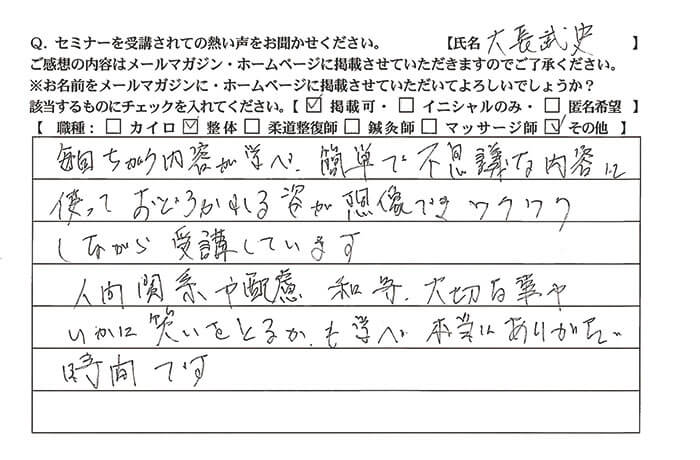 Q. セミナーを受講されての熱い声をお聞かせください。 【氏名 大長武史 】
ご感想の内容はメールマガジン・ホームページに掲載させていただきますのでご了承ください。
※お名前をメールマガジンに・ホームページに掲載させていただいてよろしいでしょうか？
該当するものにチェックを入れてください。【 ☑ 掲載可・ □ イニシャルのみ・ □ 匿名希望 】
【 職種： □ カイロ ☑ 整体 □ 柔道整復師 □ 鍼灸師 □ マッサージ師 ☑ その他 】
毎回ちがう内容が学べ、簡単で不思議な内容に
使って おどろかれる姿が想像できワクワク
しながら 受講しています
人間関係や配慮 和 等、大切な事や
いかに笑いをとるか、も学べ 本当にありがたい
時間です